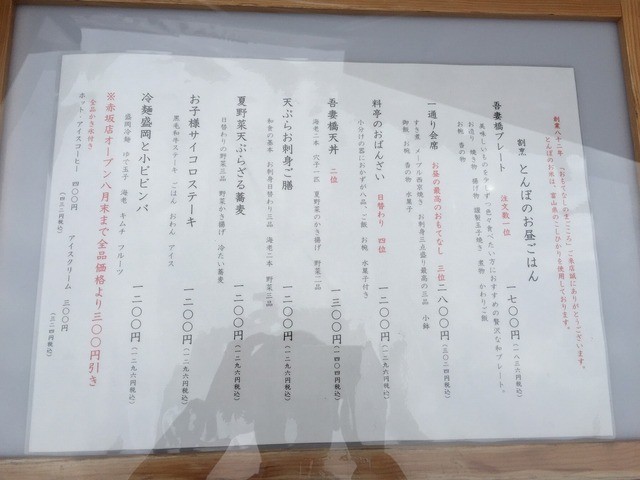 創業八十二年、「おもてなしのまごころ」ご来店誠にありがとーございます。
とんぼのお米は、富山県のこしひかりを使用しております。
割烹 とんぼのお昼ごはん
吾妻橋プレート 注文数一位 一七〇〇円(一八三六円税込)
美味しいものを少しずつ色々食べたい方におすすめの贅沢な和プレート。
お造り 焼き物 揚げ物 謹製玉子焼き 煮物 かわりご飯
お椀 香の物
一通り会席 お昼の最高のおもてなし 三位 二八〇〇円(三〇二四円税込)
すき煮 メープル西京焼き お刺身三点盛り 最高の三品 小鉢
御飯 お椀 香の物 水菓子
料亭のおばんざい 日替わり 四位 一二〇〇円(一二九六円税込)
小分けの器におかずが八品、ご飯 お椀 水菓子付き
吾妻橋天丼 二位 一三〇〇円(一四〇四円税込)
海老二本 穴子一匹 夏野菜のかき揚げ 野菜二品
天ぷらお刺身ご膳 一二〇〇円(一二九六円税込)
和食の基本 お刺身日替わり三品 海老二本 野菜三品
夏野菜天ぷらざる蕎麦 一二〇〇円(一二九六円税込)
日替わりの野菜三品 野菜かき揚げ 冷たい蕎麦
お子様サイコロステーキ 一二〇〇円(一二九六円税込)
黒毛和牛ステーキ ごはん おわん アイス
冷麺盛岡と小ビビンバ 一二〇〇円(一二九六円税込)
盛岡冷麺 ゆで玉子 海老 キムチ フルーツ
※赤坂店オープン八月末まで全品価格より三〇〇円引き
全品かき氷付き
ホット・アイスコーヒー 四〇〇円(四三二円税込) アイスクリーム 三〇〇円(三二四円税込)